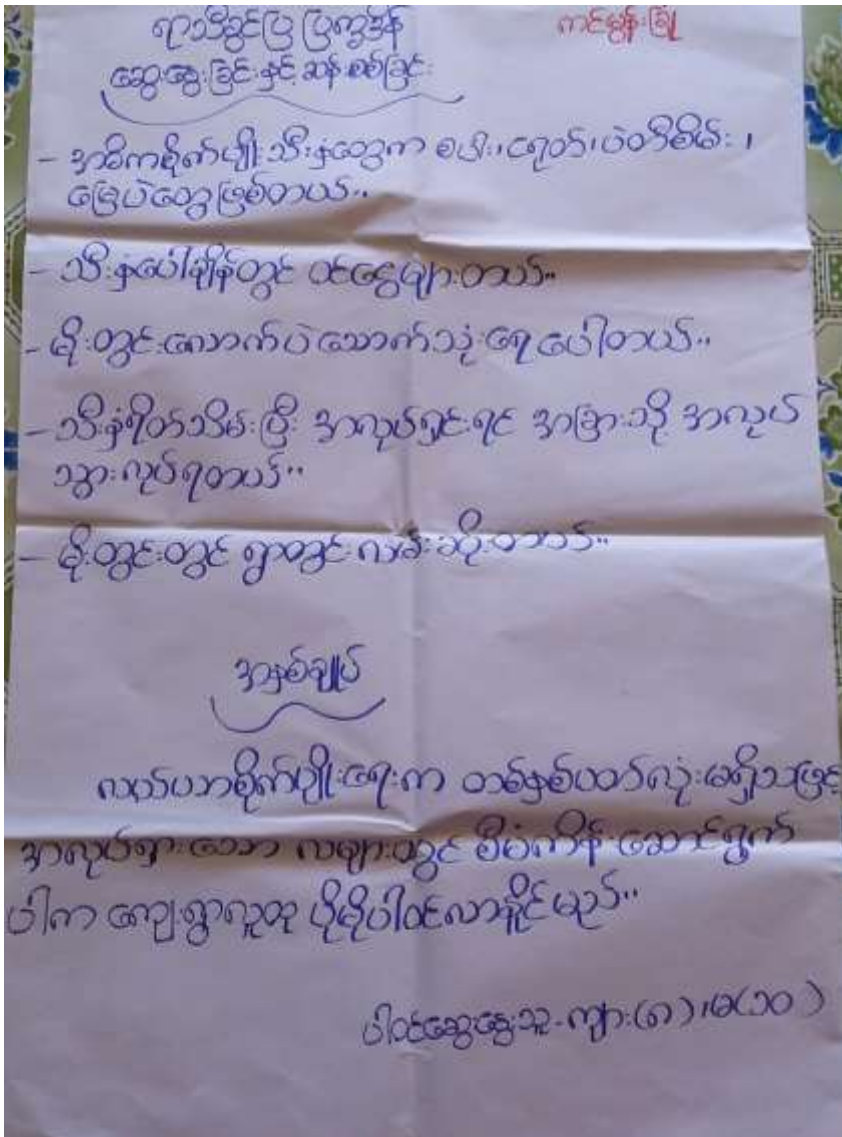 ရာသီခွင်ပြ ပြက္ခဒိန်
ကင်မွန်းခြုံ
ဆွေးနွေးခြင်းနှင့် ဆန်းစစ်ခြင်း
- အဓိကစိုက်ပျိုးသီးနှံတွေက စပါး၊ ငရုတ်၊ ပဲတီစိမ်း၊
မြေပဲတွေဖြစ်တယ်။
- သီးနှံပေါ်ချိန်တွင် ဝင်ငွေများတယ်။
- မိုးတွင်းလောက်ပဲ သောက်သုံးရေပေါတယ်။
- သီးနှံရိတ်သိမ်းပြီး အလုပ်ရှင်းရင် အခြားသို့ အလုပ်
သွားလုပ်ရတယ်။
- မိုးတွင်းတွင် ရွာတွင်းလမ်းဆိုးတယ်။
အနှစ်ချုပ်
လယ်ယာစိုက်ပျိုးရေးက တစ်နှစ်ပတ်လုံးမရှိသဖြင့်
အလုပ်ရှားသော လများတွင် စီမံကိန်းဆောင်ရွက်
ပါက ကျေးရွာလူထု ပိုမိုပါဝင်လာနိုင်မည်။
ပါဝင်ဆွေးနွေးသူ - ကျား(၈)၊ မ(၁၀)